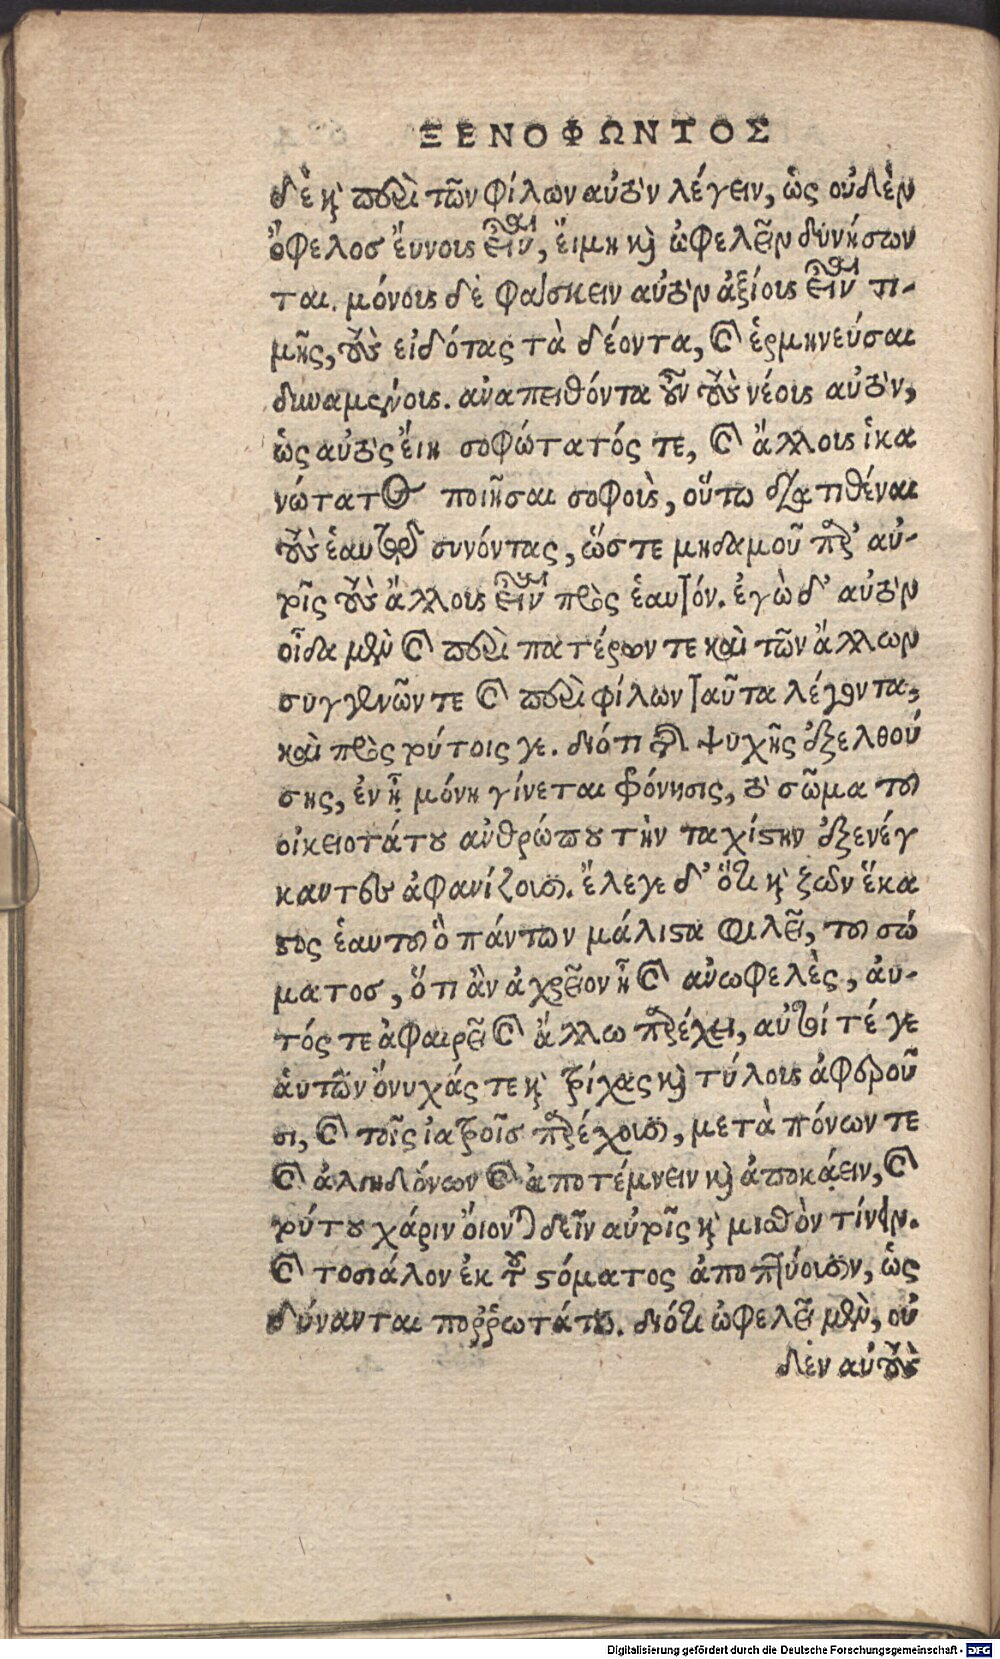 ΞΕΝΟΦΩΝΤΟΣ
δὲ καὶ περὶ τῶν φίλων αὐτὸν λέγειν, ὡς οὐδὲν
ὄφελοσ ἔυνοις εἶναι, ἔιμη καὶ ὠφελεῖν δυνήσων
ται. μόνοις δὲ φάσκειν αὐτὸν ἀξίοις εἶναι τι-
μῆς, τοὺς εἰδότας τὰ δέοντα, καὶ ἑρμηνεύσαι
δυναμένοις. ἀναπειθόντα οὖν τοὺς νέοις αὐτὸν,
ὡς αὐτὸς ἔιη σοφώτατός τε, καὶ ἄλλοις ἱκα
νώτατος ποιῆσαι σοφοὶς, οὕτω διατιθέναι
τοὺς ἑαυτῷ συνόντας, ὥστε μηδαμοῦ παρ’ αὐ-
τοῖς τοὺς ἄλλοις εἶναι πρὸς ἑαυτόν. ἐγὼ δ’ αὐτὸν
οἶδα μὲν καὶ περὶ πατέρων τε καὶ τῶν ἄλλων
συγγενῶν τε καὶ περὶ φίλων ταῦτα λέγοντα,
καὶ πρὸς τούτοις γε. διότι τῆς ψυχῆς ἐξελθού
σης, ἐν ᾗ μόνη γίνεται φρόνησις, τὸ σῶμα τοῦ
οἰκειοτάτου ἀνθρώπου τὴν ταχίστην ἐξενέγ
καντες ἀφανίζουσιν. ἔλεγε δ’ ὅτι καὶ ζῶν ἕκα
στος ἑαυτοῦ ὃ πάντων μάλιστα φιλεῖ, τοῦ σώ
ματοσ, ὅτι ἂν ἀχρεῖον ᾖ καὶ ἀνωφελὲς, αὐ-
τός τε ἀφαιρεῖ καὶ ἄλλω παρέχει, αὐτοί τέ γε
ἁυτῶν ὄνυχάς τε καὶ τρίχας καὶ τύλοις ἀφαιροῦ
σι, καὶ τοῖς ἰατροῖσ παρέχουσι, μετὰ πόνων τε
καὶ ἀλγηδόνων καὶ ἀποτέμνειν καὶ ἀποκάειν, καὶ
τούτου χάριν ὄιονται δεῖν αὐτοῖς καὶ μισθὸν τίνειν.
καὶ τοσιάλον ἐκ τοῦ στόματος ἀποπτύουσιν, ὡς
δύνανται πορῤῥωτάτω. διότι ὠφελεῖ μὲν, οὐ
δὲν αὐτοὺς
Digitalisierung gefördert durch die Deutsche Forschungsgemeinschaft - DFG